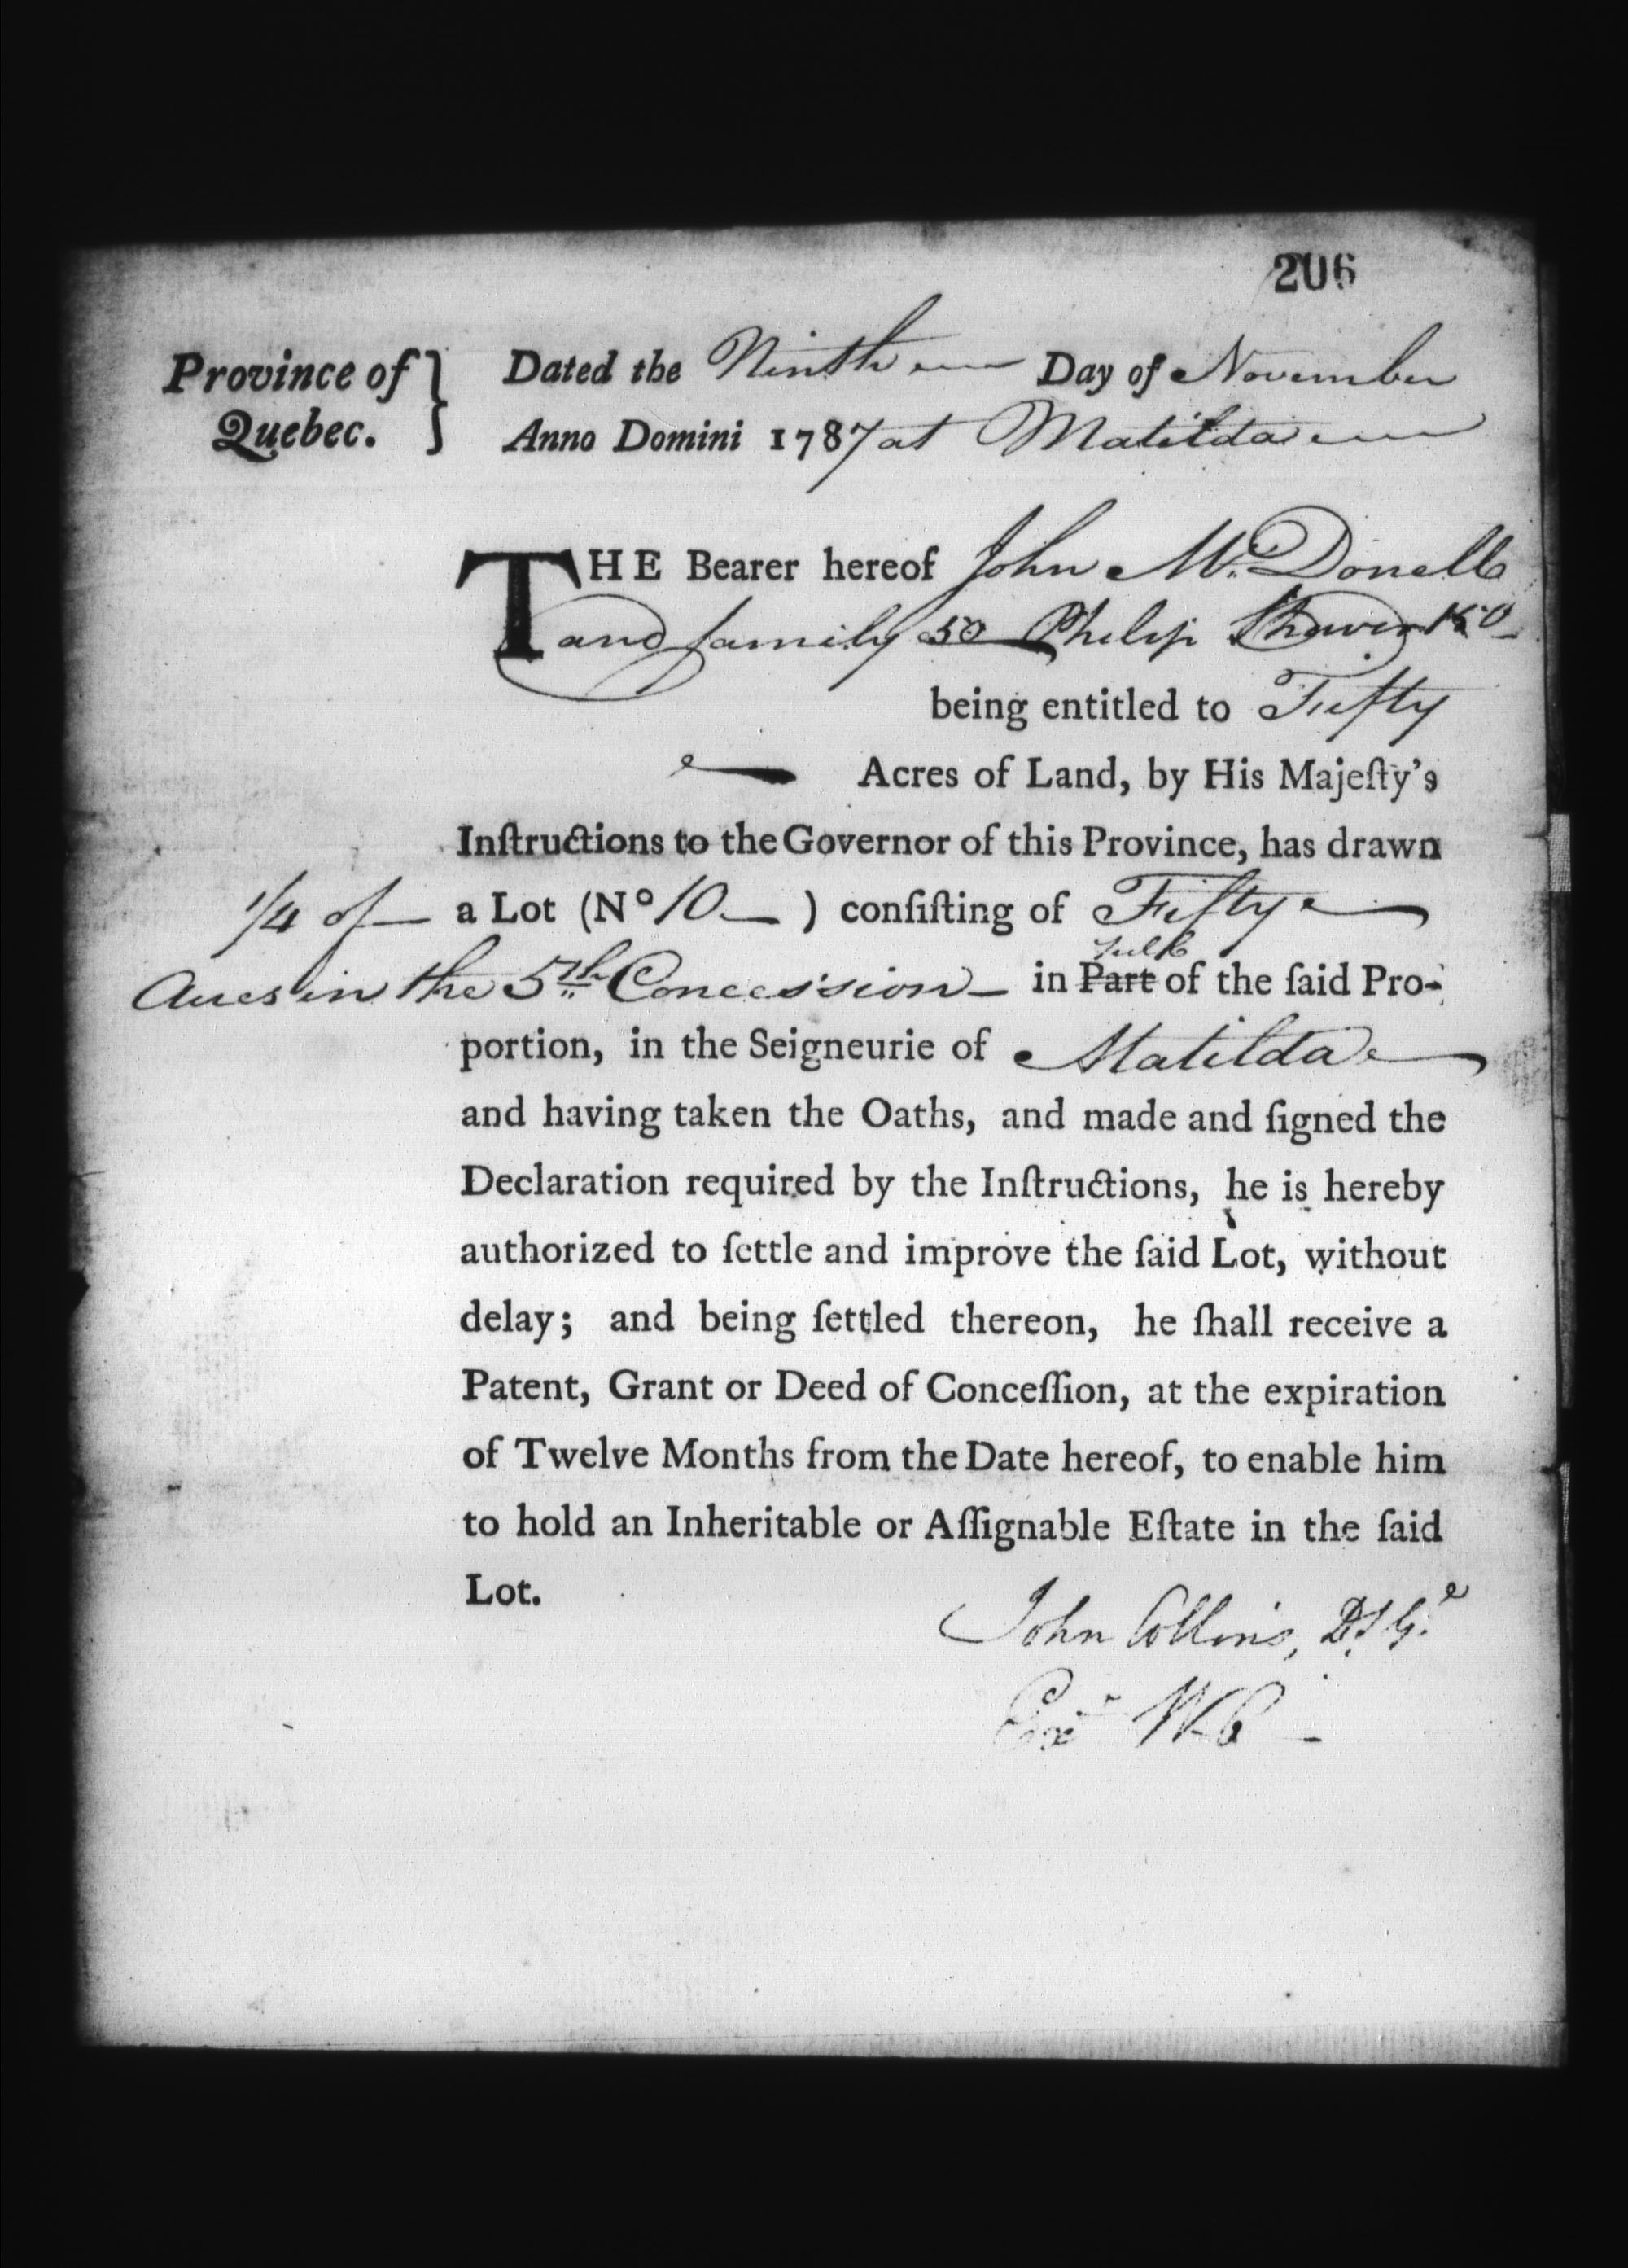 206
Province of Quebec. } Dated the Ninth Day of November
Anno Domini 1787 at Matilda
THE Bearer hereof John Mc. Donell
and family 50 Philip Shaver 150
being entitled to Fifty
Acres of Land, by His Majeſty's
Inſtructions to the Governor of this Province, has drawn
1/4 of a Lot (No 10 ) conſiſting of Fifty
Acres in the 5th Concession in Part full of the ſaid Pro-
portion, in the Seigneurie of Matilda
and having taken the Oaths, and made and ſigned the
Declaration required by the Inſtructions, he is hereby
authorized to ſettle and improve the ſaid Lot, without
delay; and being ſettled thereon, he ſhall receive a
Patent, Grant or Deed of Conceſſion, at the expiration
of Twelve Months from the Date hereof, to enable him
to hold an Inheritable or Aſſignable Eſtate in the ſaid
Lot.
John Collins, D.S.G.
Exd W.C